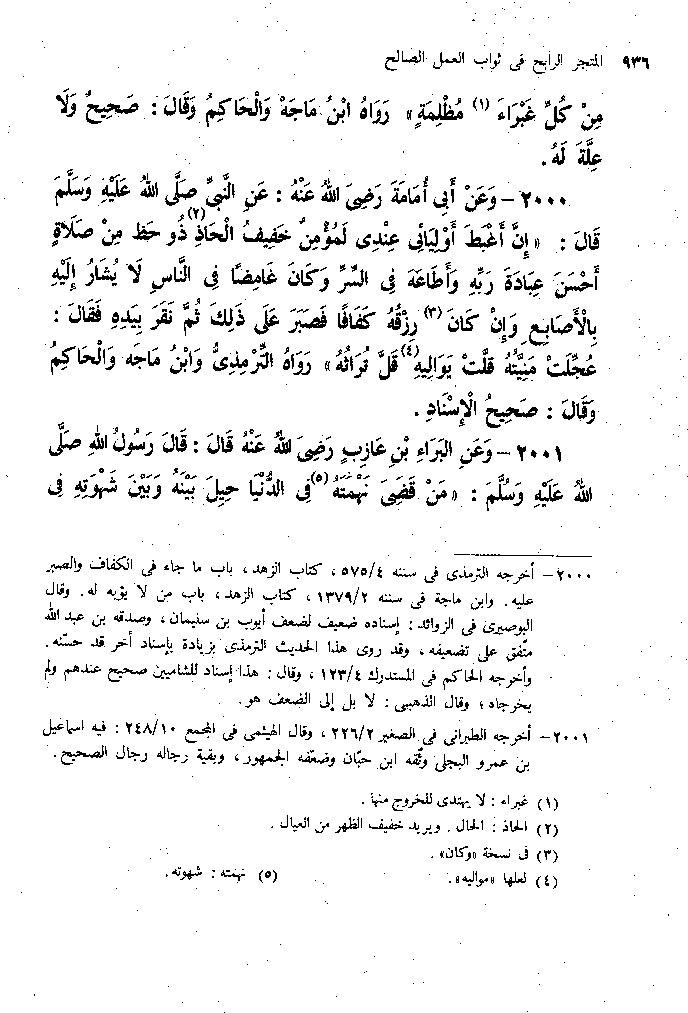 ٩٣٦ المتجر الرابح فى ثواب العمل الصالح
مِنْ كُلِّ غَبْرَاءَ (١) مُظْلِمَةٍ» رَوَاهُ ابْنُ مَاجَهْ وَالْحَاكِمُ وَقَالَ : صَحِيحٌ وَلَا
عِلَّةَ لَهُ .
٢٠٠٠ – وَعَنْ أَبِى أُمَامَةَ رَضِىَ اللهُ عَنْهُ : عَنِ النَّبِىِّ صَلَّى اللهُ عَلَيْهِ وَسَلَّمَ
قَالَ : «إِنَّ أَغْبَطَ أَوْلِيَائِى عِنْدِى لَمُؤْمِنٌ خَفِيفُ الْحَاذِ(٢) ذُو حَظٍّ مِنْ صَلَاةٍ
أَحْسَنَ عِبَادَةَ رَبِّهِ وَأَطَاعَهُ فِى السِّرِّ وَكَانَ غَامِضًا فِى النَّاسِ لَا يُشَارُ إِلَيْهِ
بِالْأَصَابِعِ وَإِنْ كَانَ (٣) رِزْقُهُ كَفَافًا فَصَبَرَ عَلَى ذَلِكَ ثُمَّ نَقَرَ بِيَدِهِ فَقَالَ :
عُجِّلَتْ مَنِيَّتُهُ قَلَّتْ بَوَالِيهِ(٤) قَلَّ تُرَاثُهُ» رَوَاهُ التِّرْمِذِىُّ وَابْنُ مَاجَه وَالْحَاكِمُ
وَقَالَ : صَحِيحُ الْإِسْنَادِ .
٢٠٠١ – وَعَنِ الْبَرَاءِ بْنِ عَازِبٍ رَضِىَ اللهُ عَنْهُ قَالَ : قَالَ رَسُولُ اللهِ صَلَّى
اللهُ عَلَيْهِ وَسَلَّمَ : «مَنْ قَضَى نَهْمَتَهُ(٥) فِى الدُّنْيَا حِيلَ بَيْنَهُ وَبَيْنَ شَهْوَتِهِ فِى
٢٠٠٠ – أخرجه الترمذى فى سننه ٥٧٥/٤ ، كتاب الزهد ، باب ما جاء فى الكفاف والصبر
عليه . وابن ماجة فى سننه ١٣٧٩/٢ ، كتاب الزهد ، باب من لا يؤبه له . وقال
البوصيرى فى الزوائد : إسناده ضعيف لضعف أيوب بن سليمان ، وصدقه بن عبد الله
متّفق على تضعيفه ، وقد روى هذا الحديث الترمذى بزيادة بإسناد أخر قد حسّنه .
وأخرجه الحاكم فى المستدرك ١٢٣/٤ ، وقال : هذا إسناد للشاميين صحيح عندهم ولم
يخرجاه ؛ وقال الذهبى : لا بل إلى الضعف هو .
٢٠٠١ – أخرجه الطبرانى فى الصغير ٢٢٦/٢ ، وقال الهيثمى فى المجمع ٢٤٨/١٠ : فيه اسماعيل
بن عمرو البجلى وثّقه ابن حبّان وضعّفه الجمهور ، وبقية رجاله رجال الصحيح .
(١) غبراء : لا يهتدى للخروج منها .
(٢) الحاذ : الحال . ويريد خفيف الظهر من العيال .
(٣) فى نسخة «وكان» .
(٤) لعلها «مواليه» . (٥) نهمته : شهوته .